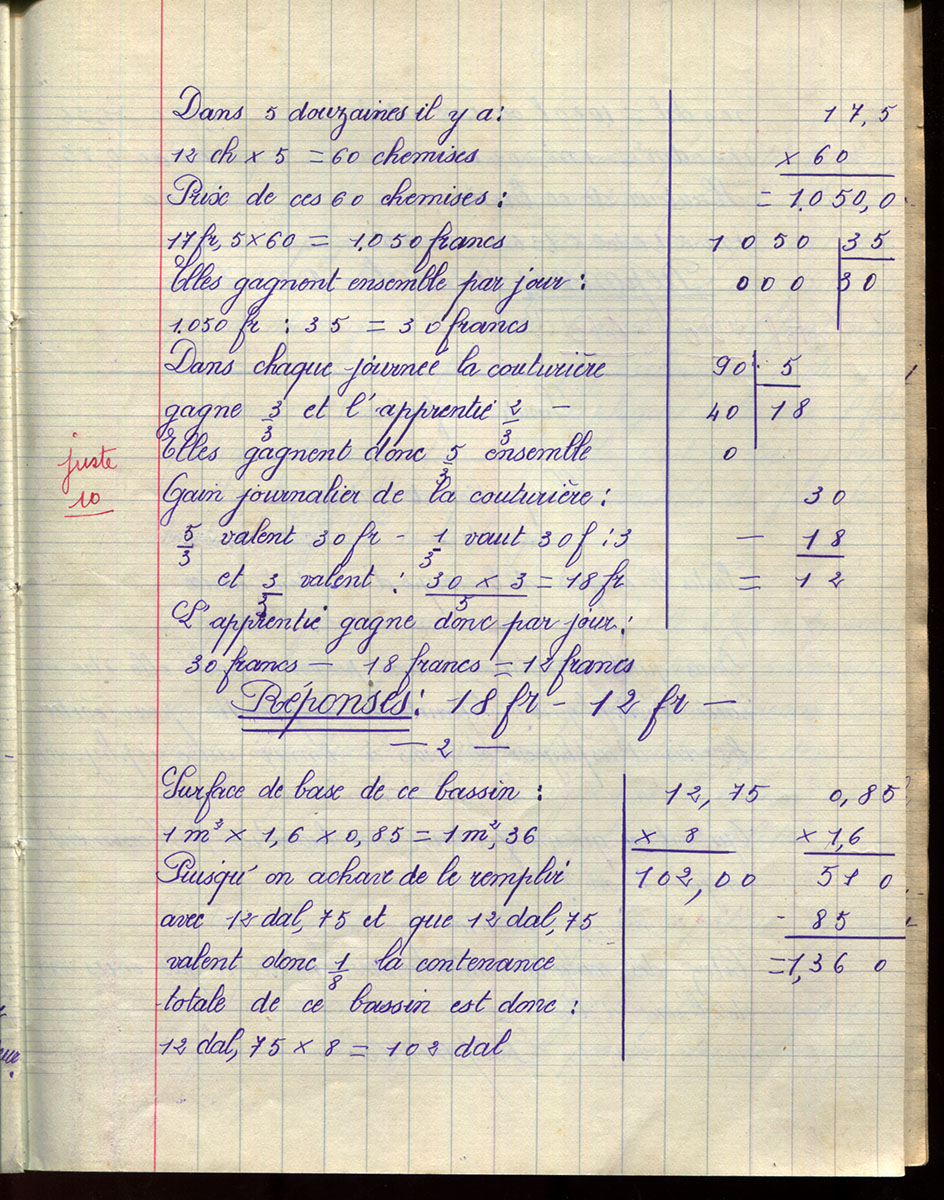 Dans 5 douzaines il y a :
12 ch × 5 = 60 chemises
Prix de ces 60 chemises :
17 fr, 5 × 60 = 1.050 francs
Elles gagnent ensemble par jour :
1.050 fr : 35 = 30 francs
Dans chaque journée la couturière
gagne 3/3 et l'apprentie 2/3 —
Elles gagnent donc 5/3 ensemble
Gain journalier de la couturière :
5/3 valent 30 fr - 1/3 vaut 30 f : 3
et 3/3 valent : 30 × 3 / 5 = 18 fr
L'apprentie gagne donc par jour :
30 francs — 18 francs = 12 francs
Réponses : 18 fr - 12 fr —
17,5
× 60
= 1.050,0
1050 | 35
000 | 30
90 | 5
40 | 18
0
30
— 18
= 12
juste
10
— 2 —
Surface de base de ce bassin :
1 m² × 1,6 × 0,85 = 1 m², 36
Puisqu'on achave de le remplir
avec 12 dal, 75 et que 12 dal, 75
valent donc 1/8 la contenance
totale de ce bassin est donc :
12 dal, 75 × 8 = 102 dal
12,75
× 8
102,00
0,85
× 1,6
510
85
= 1,360